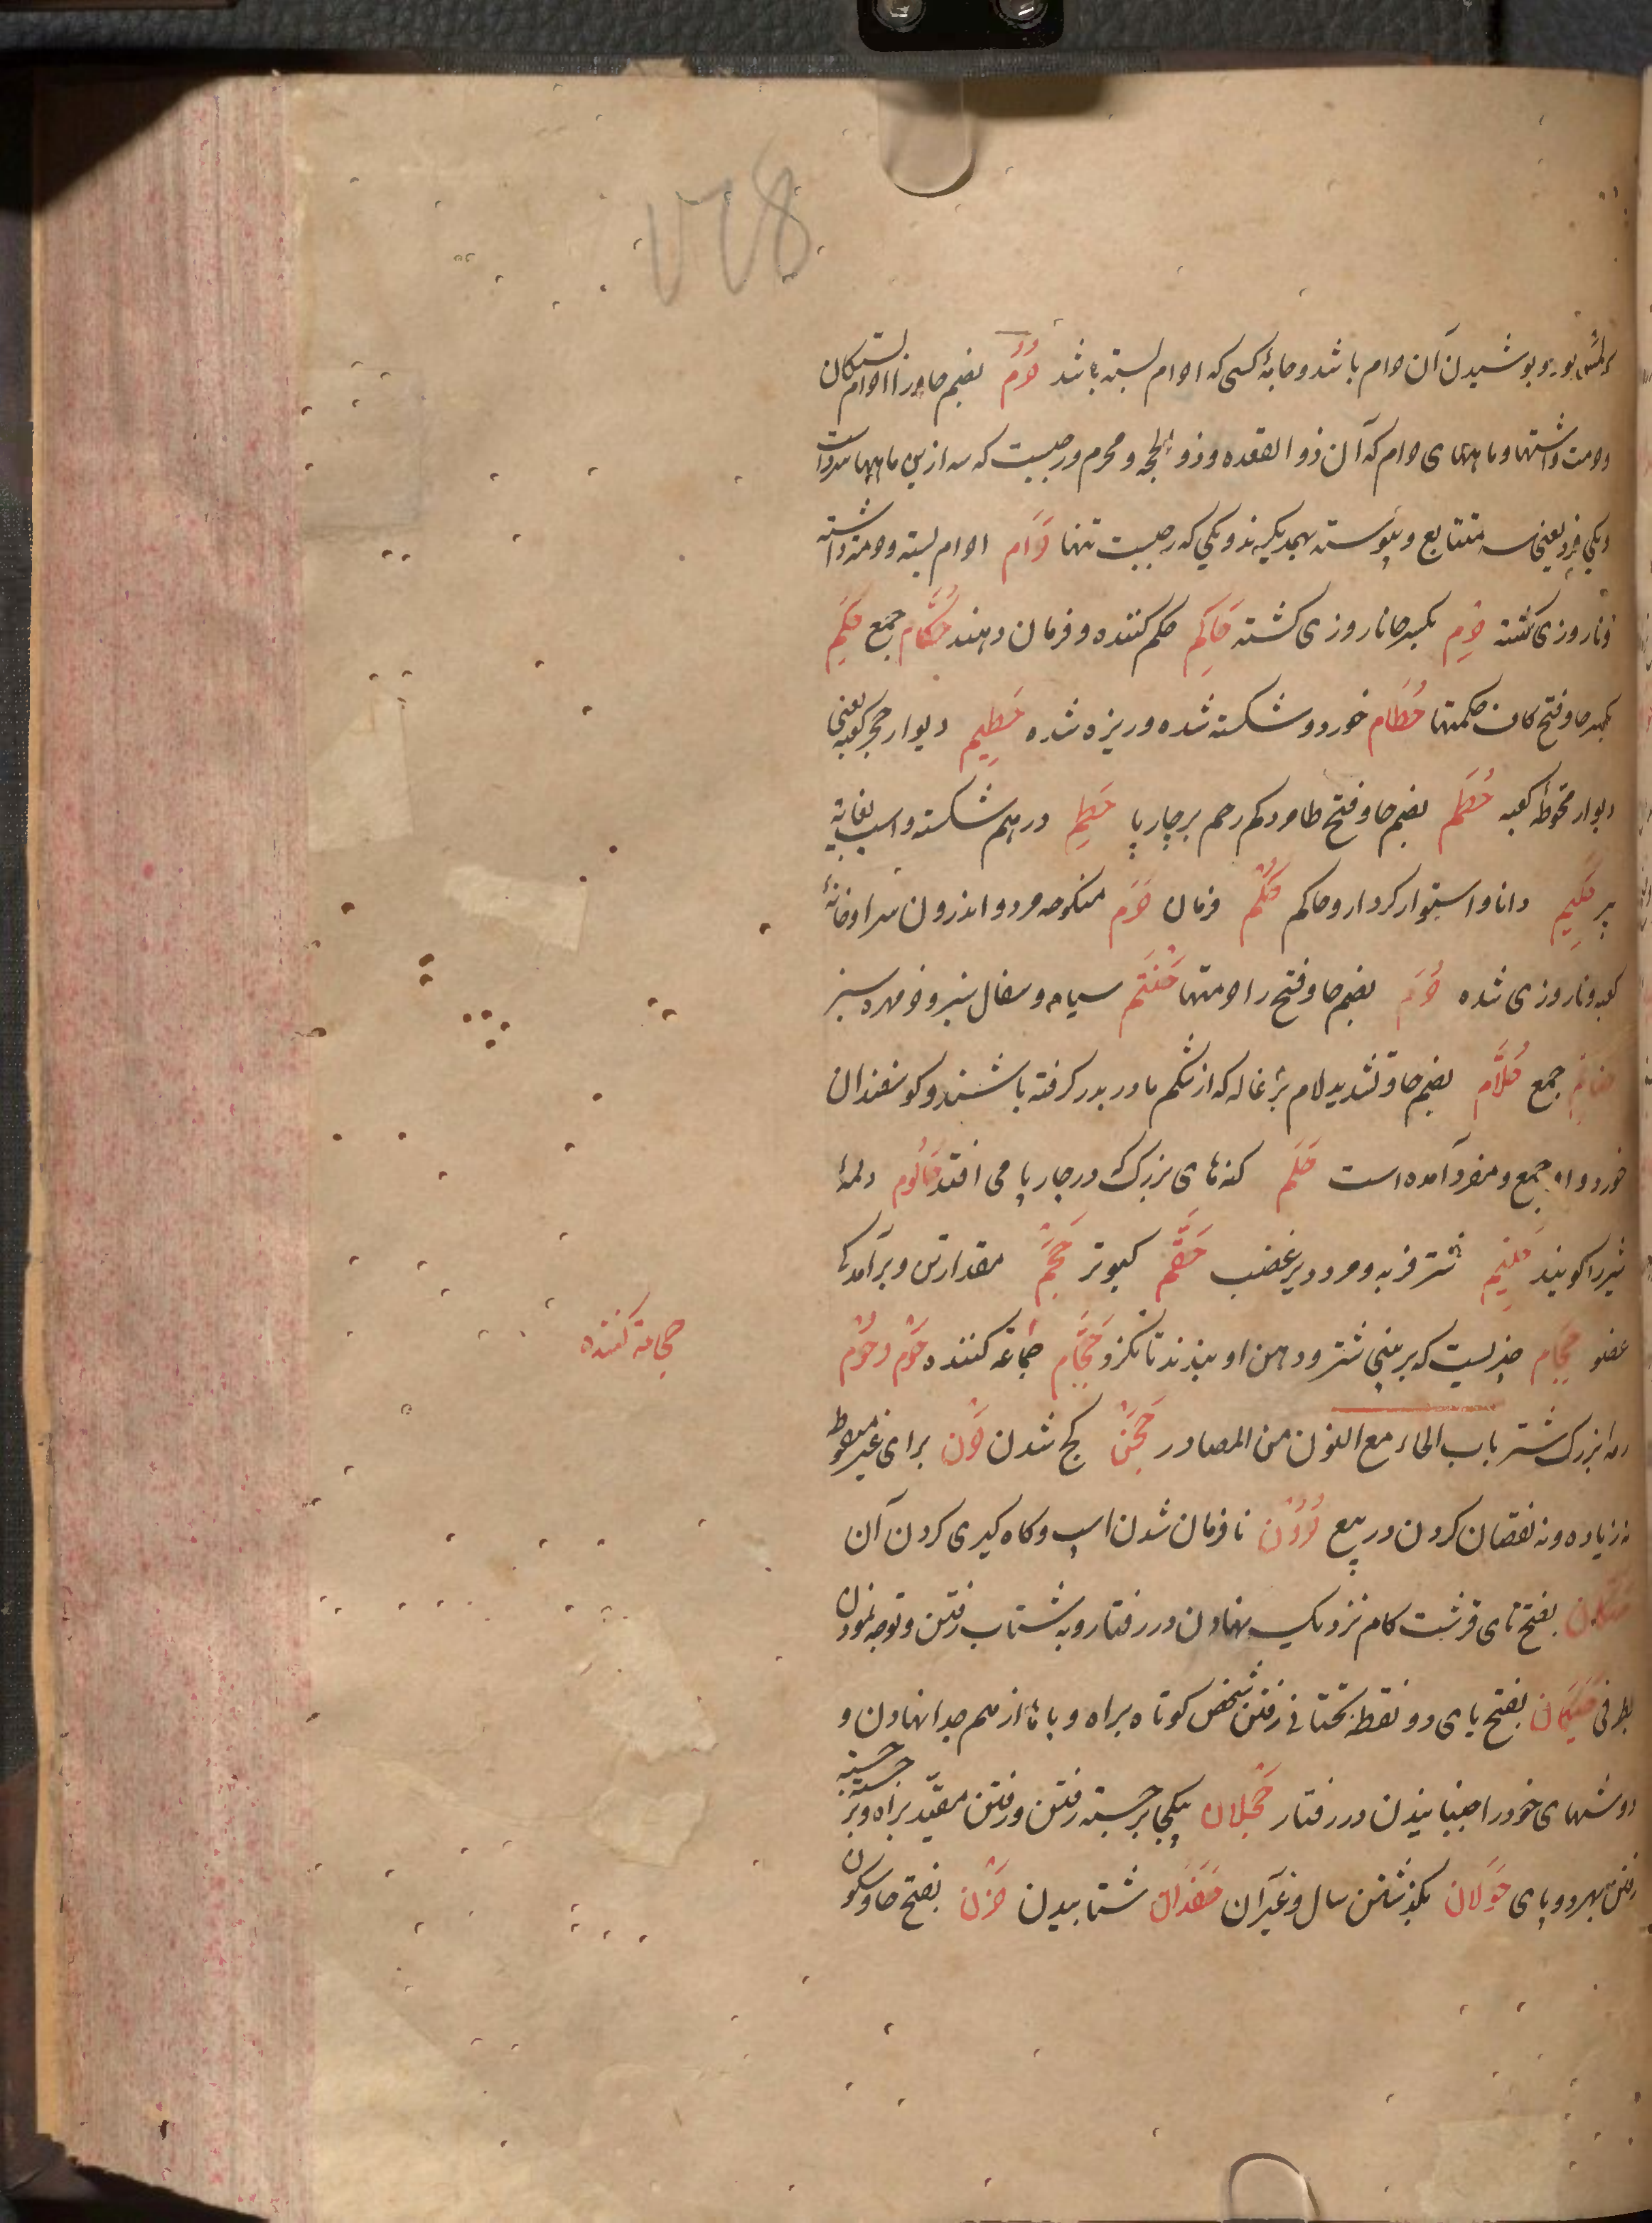 ۷۲۸
بود و پوشیدن آن حرام باشد و جامهٔ کسی که احرام بسته باشد حُرُم بضم حا و را احرام بستگان
و حرمت داشتها و ماههای حرام که آن ذو القعده و ذو الحجه و محرم و رجبست که سه ازین ماهها سرد است
و یکی فرد یعنی سه متتابع و پیوسته بهمدیگرند و یکی که رجبست تنها حَرَام احرام بسته و حرمت داشته
و ناروزی گشته حِرم بکسر حا ناروزی گشته حَاکِم حکم کننده و فرمان دهنده حُکَّام جمع حِکَم
بکسر حا و فتح کاف حکمتها حُطَام خورد و شکسته شده و ریزه شده حَطِیم دیوار حجر کعبه یعنی
دیوار محوطهٔ کعبه حُطَم بضم حا و فتح طا مرد کم رحم بر چارپا حَطِم درهم شکسته و اسب بغایة
پیر حَکِیم دانا و استوار کردار و حاکم حُکْم فرمان حَرَم منکوحه مرد و اندرون سرا و خانهٔ
کعبه و ناروزی شده حُرَم بضم حا و فتح را حرمتها حَنْتَم سیاه و سفال سبز و خرمهره سبز
حناتم جمع حُلَّام بضم حا و تشدید لام بزغاله که از شکم مادر بدر کرفته باشند و کوسفندان
خورد و او جمع و مفرد آمده است حَلَم کنه‌های بزرک که در چارپا می افتد حَالُوم دلمهٔ
شیر را کویند حَلِیم شتر فربه و مرد دیر غضب حَمَام کبوتر حَجْم مقدار تن و برآمدکی
عضو حِجَام چیزیست که بر بینی شتر و دهن او بندند تا نکزد حَجَّام حجامة کننده حَوْم و حُوْم
حجامة کننده
رمهٔ بزرک شتر باب الحاء مع النون من المصادر حَجَن کج شدن حَرْن برای غیر منقوط
نه زیاده و نه نقصان کردن در بیع حُرُون نافرمان شدن اسپ و کاه کیری کردن آن
حَتَکَان بفتح تای قرشت کام نزدیک نهادن در رفتار و به شتاب رفتن و توجه نمودن
بطرفی حَیَکَان بفتح یای دو نقطه تحتانی رفتن شخص کوتاه براه و پاها از هم جدا نهادن و
دوشهای خود را جنبانیدن در رفتار حَجَلَان بیکپا برجسته رفتن و رفتن مقید براه و برجسته جسته
رفتن بهر دو پای حَوَلَان بکذشتن سال و غیر آن حَفَدَان شتابیدن حَزْن بفتح حا و سکون